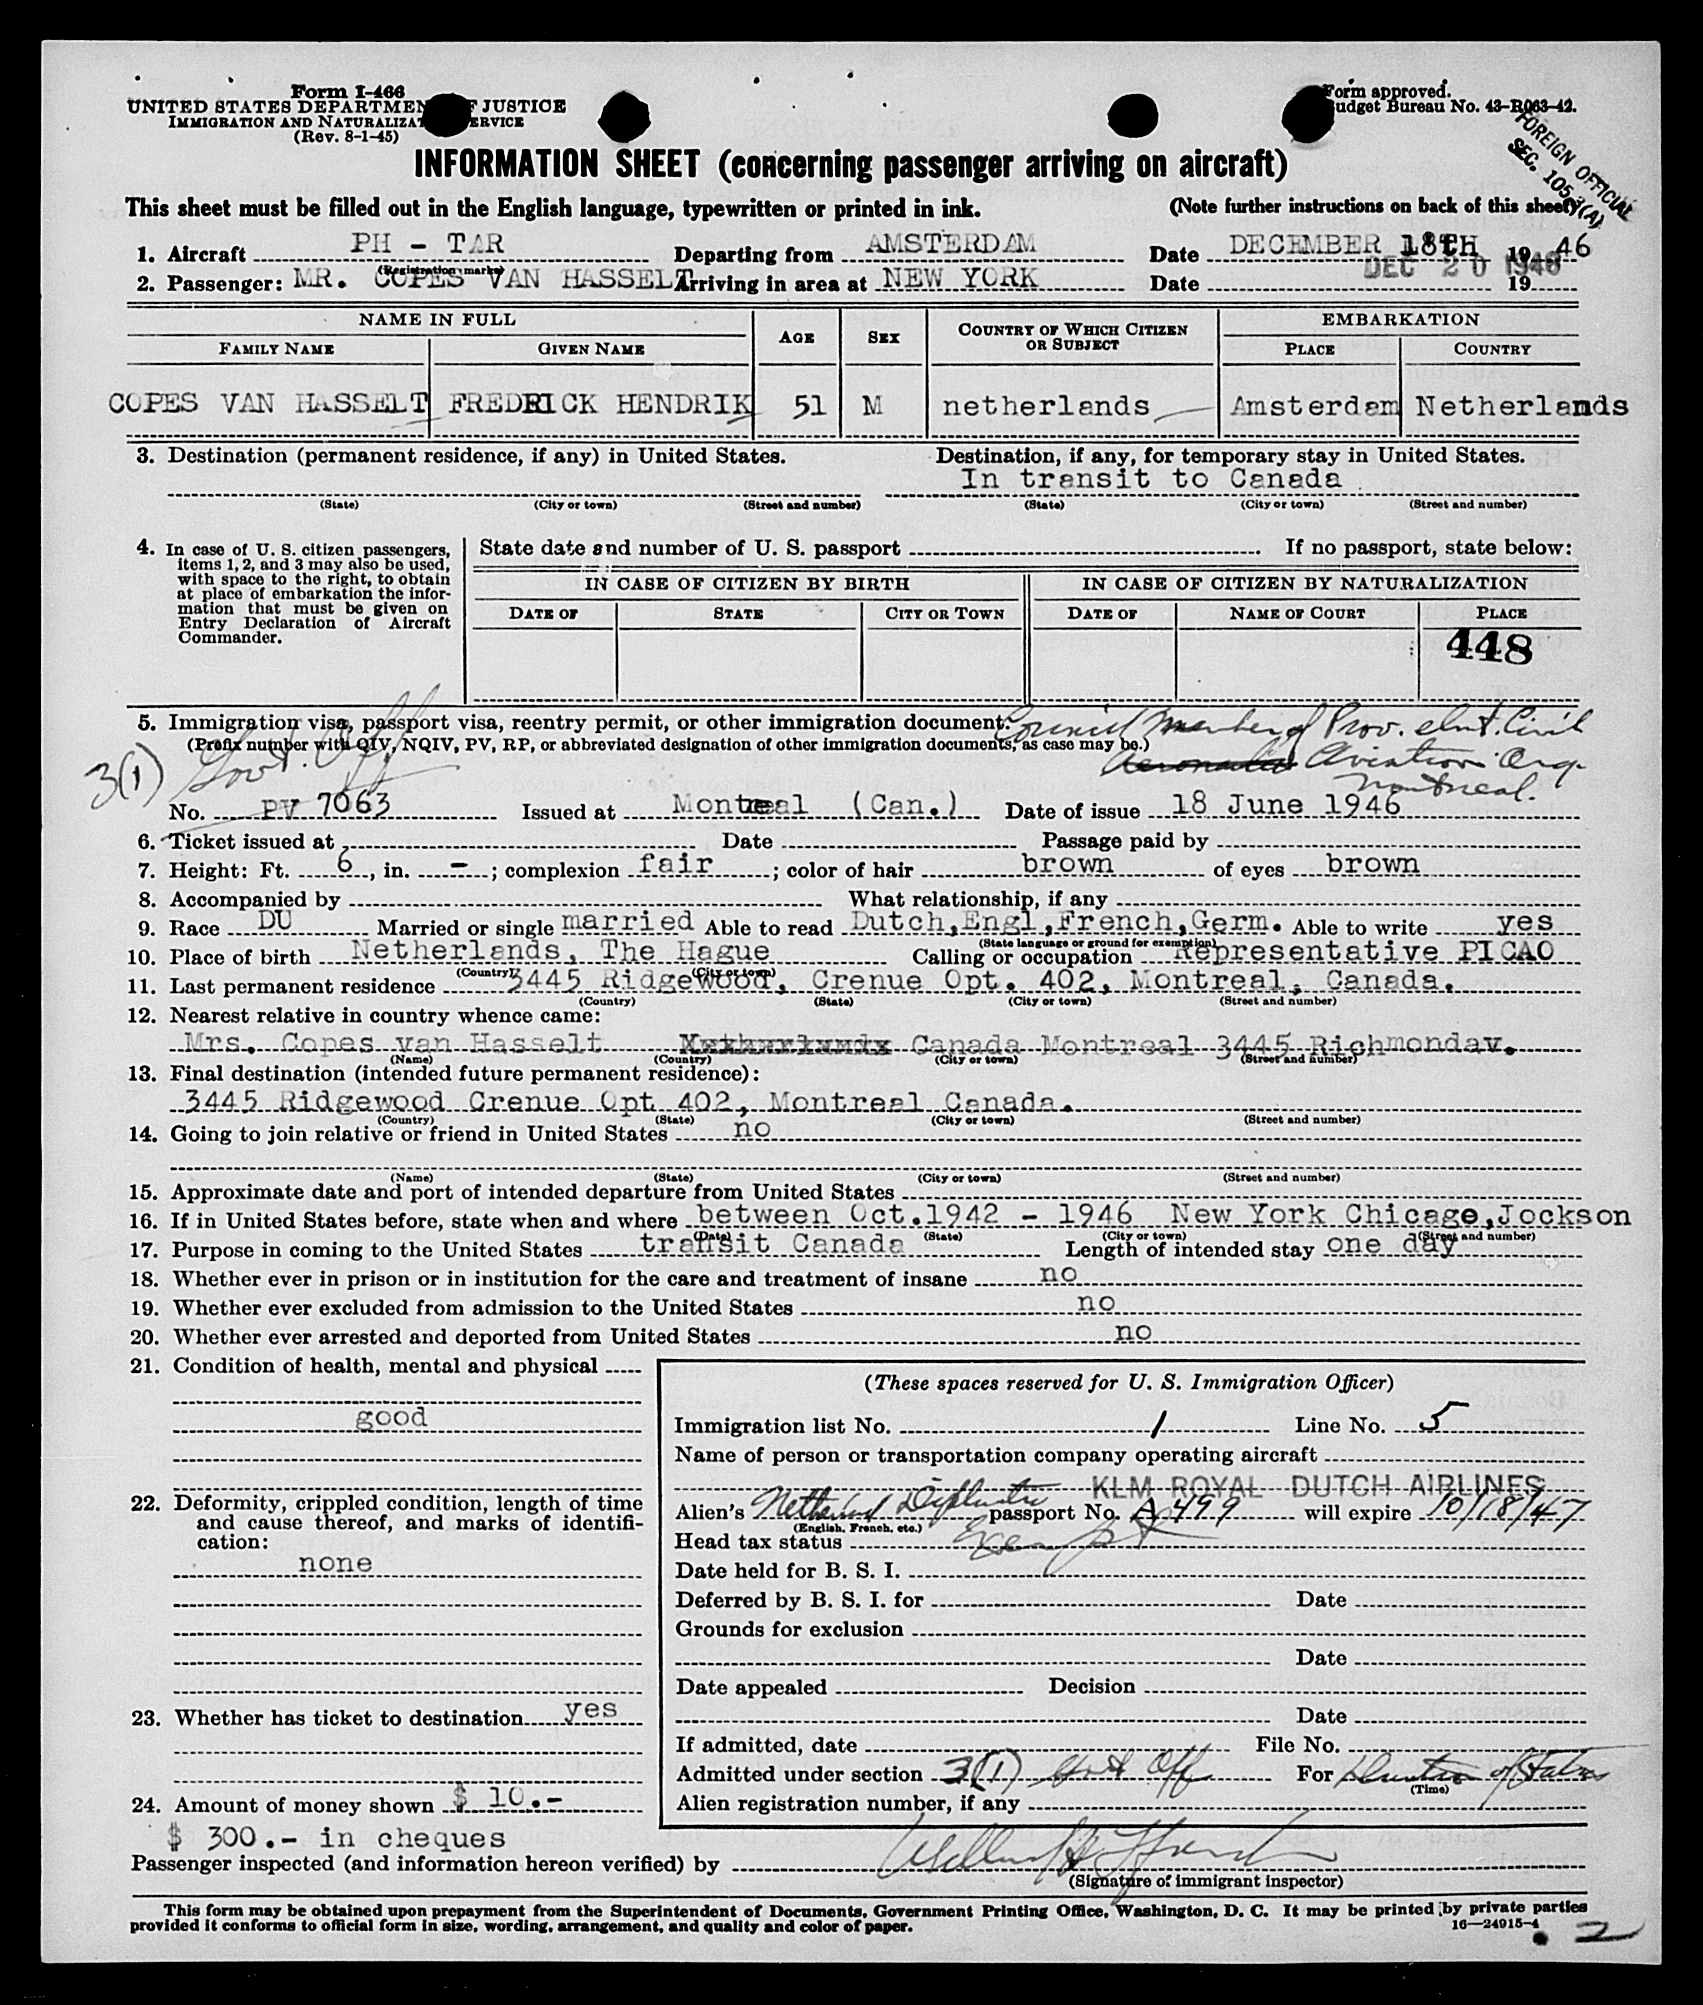 Form I-466
UNITED STATES DEPARTMENT OF JUSTICE
IMMIGRATION AND NATURALIZATION SERVICE
(Rev. 8-1-45)
Form approved.
Budget Bureau No. 43-R063-42.
FOREIGN OFFICIAL
SEC. 105.3(A)
INFORMATION SHEET (concerning passenger arriving on aircraft)
This sheet must be filled out in the English language, typewritten or printed in ink. (Note further instructions on back of this sheet)
1. Aircraft PH - TAR Departing from AMSTERDAM Date DECEMBER 18TH 1946
(Registration marks)
DEC 20 1946
2. Passenger: MR. COPES VAN HASSELT Arriving in area at NEW YORK Date 19
NAME IN FULL AGE SEX COUNTRY OF WHICH CITIZEN OR SUBJECT EMBARKATION
FAMILY NAME GIVEN NAME PLACE COUNTRY
COPES VAN HASSELT FREDRICK HENDRIK 51 M netherlands Amsterdam Netherlands
3. Destination (permanent residence, if any) in United States. Destination, if any, for temporary stay in United States.
In transit to Canada
(State) (City or town) (Street and number) (State) (City or town) (Street and number)
4. In case of U. S. citizen passengers, items 1, 2, and 3 may also be used, with space to the right, to obtain at place of embarkation the information that must be given on Entry Declaration of Aircraft Commander.
State date and number of U. S. passport If no passport, state below:
IN CASE OF CITIZEN BY BIRTH IN CASE OF CITIZEN BY NATURALIZATION
DATE OF STATE CITY OR TOWN DATE OF NAME OF COURT PLACE
448
5. Immigration visa, passport visa, reentry permit, or other immigration document: Council Member of Prov. Int. Civil
(Prefix number with QIV, NQIV, PV, RP, or abbreviated designation of other immigration documents, as case may be.)
Aviation Org.
Montreal.
3(1) Govt. Off
No. PV 7063 Issued at Montreal (Can.) Date of issue 18 June 1946
6. Ticket issued at Date Passage paid by
7. Height: Ft. 6, in. -; complexion fair; color of hair brown of eyes brown
8. Accompanied by What relationship, if any
9. Race DU Married or single married Able to read Dutch,Engl,French,Germ. Able to write yes
(State language or ground for exemption)
10. Place of birth Netherlands, The Hague Calling or occupation Representative PICAO
(Country) (City or town)
11. Last permanent residence 3445 Ridgewood, Crenue Opt. 402, Montreal, Canada.
(Country) (State) (City or town) (Street and number)
12. Nearest relative in country whence came:
Mrs. Copes van Hasselt Canada Montreal 3445 Richmondav.
(Name) (Country) (City or town) (Street and number)
13. Final destination (intended future permanent residence):
3445 Ridgewood Crenue Opt 402, Montreal Canada.
(Country) (State) (City or town) (Street and number)
14. Going to join relative or friend in United States no
(Name) (State) (City or town) (Street and number)
15. Approximate date and port of intended departure from United States
16. If in United States before, state when and where between Oct.1942 - 1946 New York Chicago,Jockson
(Date) (State) (City or town) (Street and number)
17. Purpose in coming to the United States transit Canada Length of intended stay one day
18. Whether ever in prison or in institution for the care and treatment of insane no
19. Whether ever excluded from admission to the United States no
20. Whether ever arrested and deported from United States no
21. Condition of health, mental and physical
good
22. Deformity, crippled condition, length of time and cause thereof, and marks of identification:
none
23. Whether has ticket to destination yes
24. Amount of money shown $ 10.-
$ 300.- in cheques
(These spaces reserved for U. S. Immigration Officer)
Immigration list No. 1 Line No. 5
Name of person or transportation company operating aircraft
KLM ROYAL DUTCH AIRLINES
Alien's Netherland Diplomatic passport No. A 499 will expire 10/18/47
(English, French, etc.)
Head tax status Exempt
Date held for B. S. I.
Deferred by B. S. I. for Date
Grounds for exclusion
Date
Date appealed Decision
Date
If admitted, date File No.
Admitted under section 3(1) Govt Off For Duration of Status
(Time)
Alien registration number, if any
Passenger inspected (and information hereon verified) by
(Signature of immigrant inspector)
This form may be obtained upon prepayment from the Superintendent of Documents, Government Printing Office, Washington, D. C. It may be printed by private parties
provided it conforms to official form in size, wording, arrangement, and quality and color of paper.
16—24915-4
2